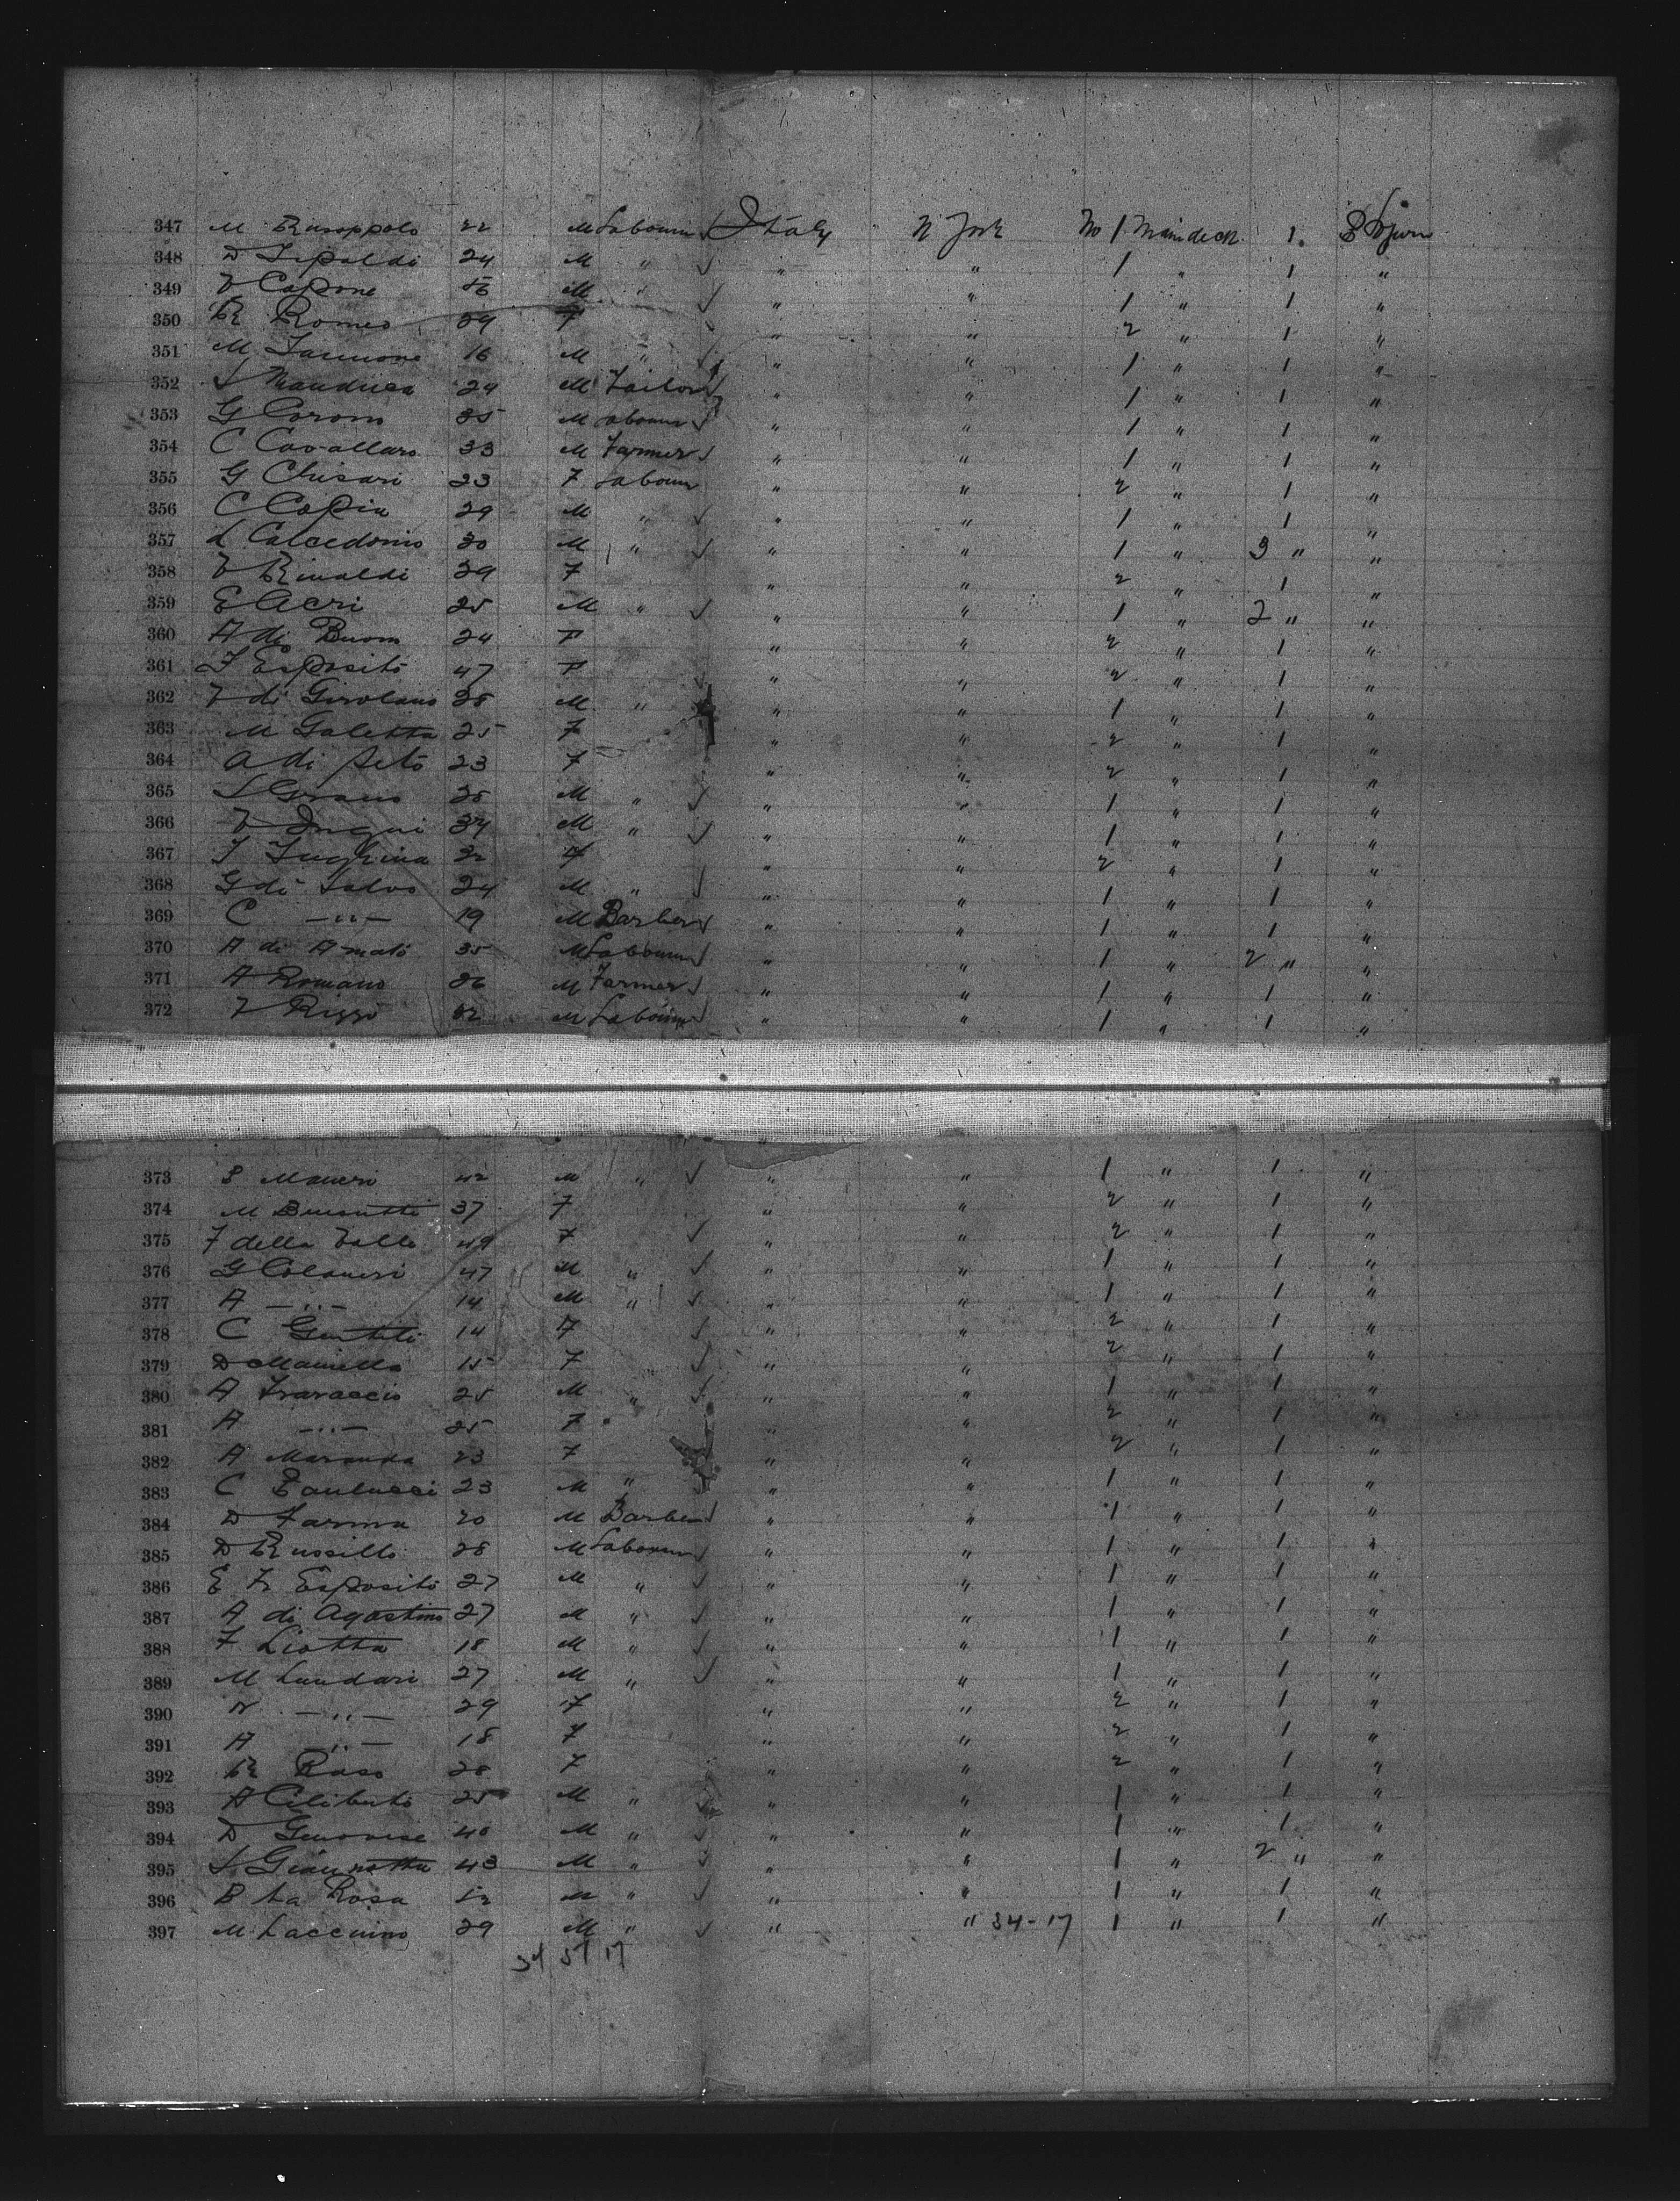 347 M 22 M Labourer Italy N York No 1 Main deck 1
348 D 24 M " " " 1 " 1 "
349 V Capone M " " " 1 " 1 "
350 R Romeo 29 F " " 2 " 1 "
351 M Iannone 16 M " " " 1 " 1 "
352 S Manduca 24 M Tailor " " 1 " 1 "
353 G 35 M Labourer " " 1 " 1 "
354 C Cavallaro 33 M Farmer " " 1 " 1 "
355 G Chisari 23 F Labourer " " 2 " 1 "
356 C 29 M " " " 1 " 1 "
357 L Calcedonio 30 M " " " 1 " 3 " "
358 V Rinaldi 29 F " " 2 " 1 "
359 E Acri 25 M " " " 1 " 2 " "
360 A di Buono 24 F " " 2 " 1 "
361 F Esposito 47 F " " 2 " 1 "
362 V di Girolamo 38 M " " " 1 " 1 "
363 M Galetta 25 F " " 2 " 1 "
364 A di 23 F " " 2 " 1 "
365 S 38 M " " " 1 " 1 "
366 V 34 M " " " 1 " 1 "
367 32 F " " 2 " 1 "
368 G di Salvo 24 M " " " 1 " 1 "
369 C —"— 19 M Barber " " 1 " 1 "
370 A di Amato 35 M Labourer " " 1 " 2 " "
371 A Romano 26 M Farmer " " 1 " 1 "
372 V Rizzo 32 M Labourer " " 1 " 1 "
373 S Maneri 42 M " " " 1 " 1 "
374 M 37 F " " 2 " 1 "
375 F della Valle 49 F " " 2 " 1 "
376 G Colaneri 47 M " " " 1 " 1 "
377 A —"— 14 M " " " 1 " 1 "
378 C Gentile 14 F " " 2 " 1 "
379 D Mainella 15 F " " 2 " 1 "
380 A Fravaccio 25 M " " " 1 " 1 "
381 A —"— 25 F " " 2 " 1 "
382 A Maranda 23 F " " 2 " 1 "
383 C Paulucci 23 M " " " 1 " 1 "
384 D Farina 20 M Barber " " 1 " 1 "
385 D Russillo 28 M Labourer " " 1 " 1 "
386 E Fr Esposito 27 M " " " 1 " 1 "
387 A di Agostino 27 M " " " 1 " 1 "
388 F Liotta 18 M " " " 1 " 1 "
389 M Landari 27 M " " " 1 " 1 "
390 N —"— 29 F " " 2 " 1 "
391 A —"— 18 F " " 2 " 1 "
392 R Raso 28 F " " 2 " 1 "
393 A Ciliberto 25 M " " " 1 " 1 "
394 D Genovese 40 M " " " 1 " 1 "
395 S Giannotta 43 M " " " 1 " 2 " "
396 B La Rosa 12 M " " " 1 " 1 "
397 M 29 M " " " 34-17 1 " 1 "
34 51 17